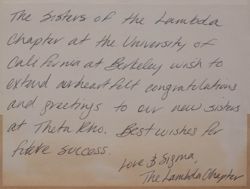 The Sisters of the Lambda
Chapter at the University of
California at Berkeley wish to
extend our heartfelt congratulations
and greetings to our new sisters
at Theta Rho. Best wishes for
future success.
Love & Sigma,
The Lambda Chapter